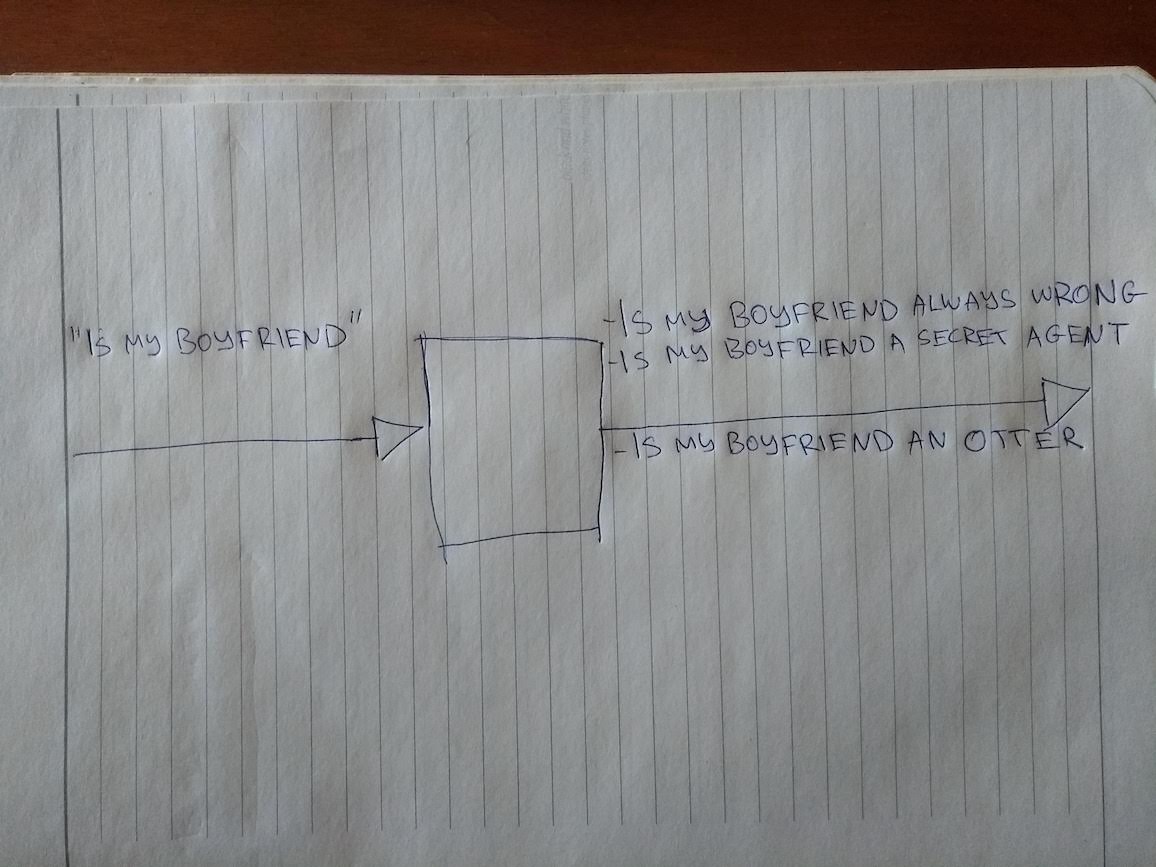 "IS MY BOYFRIEND"
-IS MY BOYFRIEND ALWAYS WRONG
-IS MY BOYFRIEND A SECRET AGENT
-IS MY BOYFRIEND AN OTTER